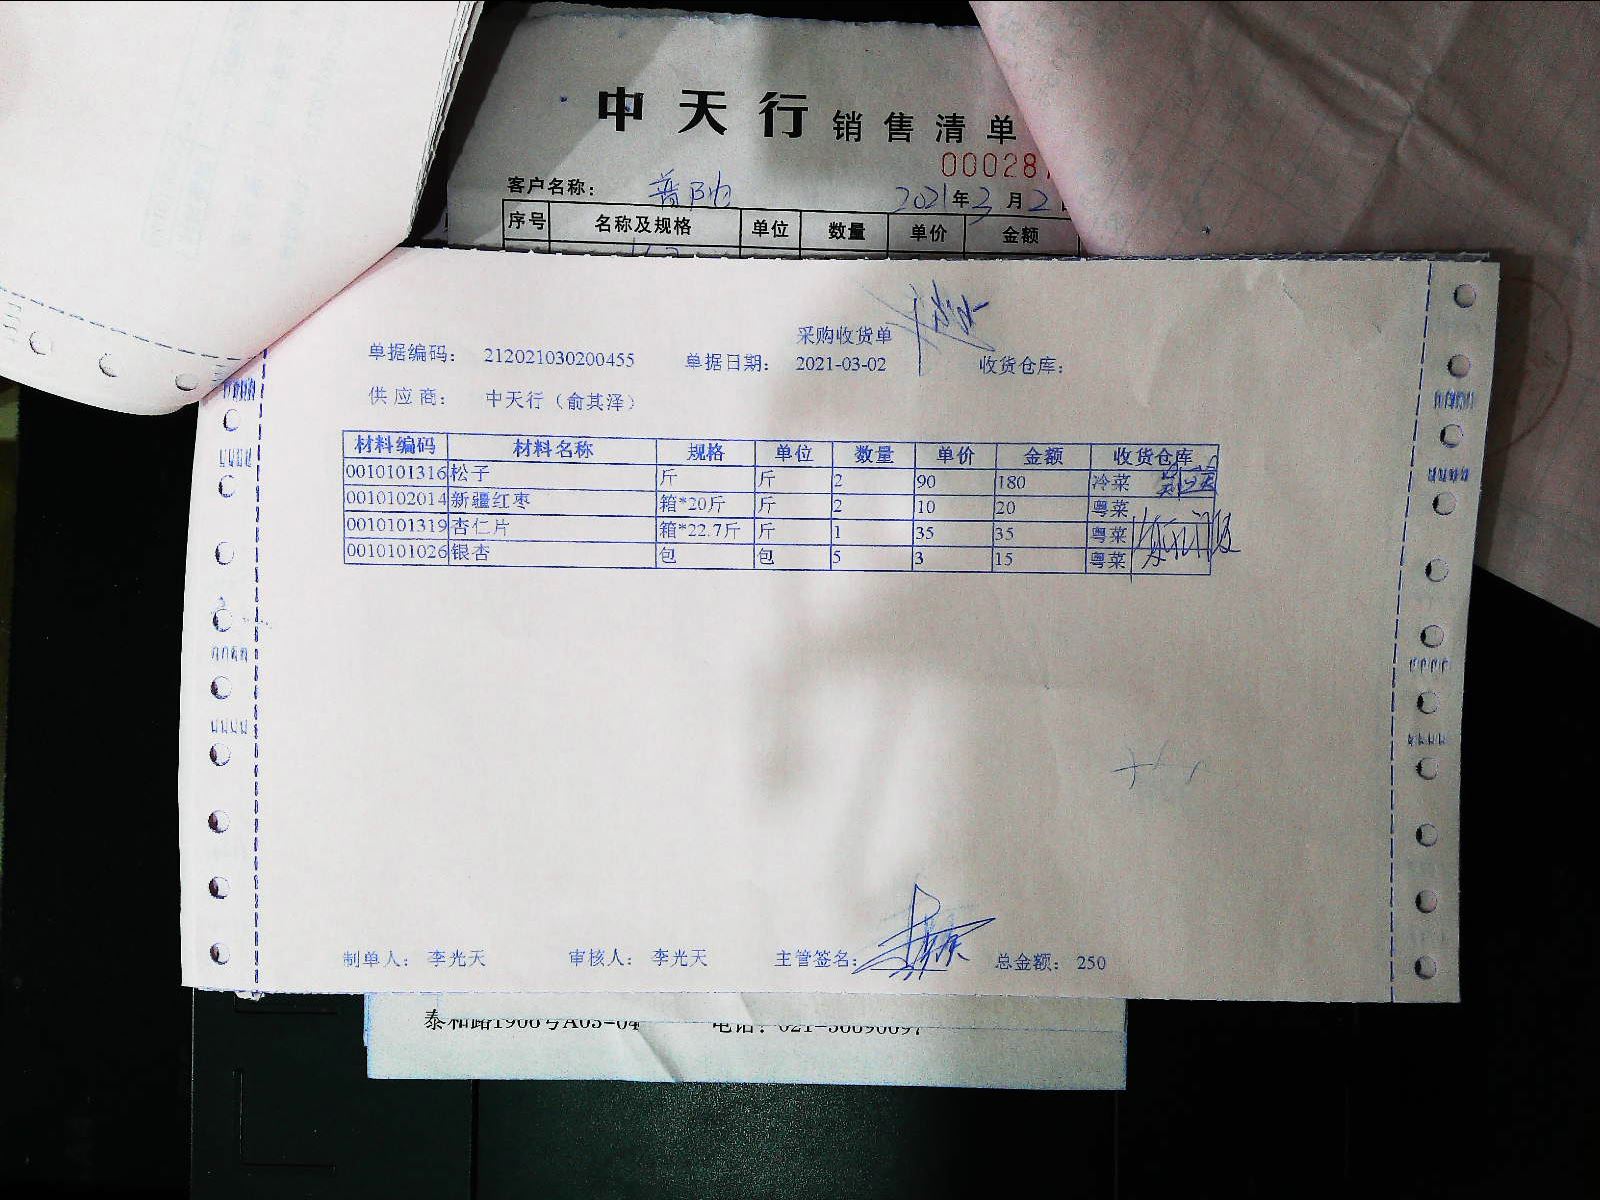 中天行 销售清单
00028
客户名称： 普陀 2021年3月2
序号 名称及规格 单位 数量 单价 金额
采购收货单
单据编码： 212021030200455 单据日期： 2021-03-02 收货仓库：
供应商： 中天行（俞其泽）
材料编码 材料名称 规格 单位 数量 单价 金额 收货仓库
0010101316 松子 斤 斤 2 90 180 冷菜
0010102014 新疆红枣 箱*20斤 斤 2 10 20 粤菜
0010101319 杏仁片 箱*22.7斤 斤 1 35 35 粤菜
0010101026 银杏 包 包 5 3 15 粤菜
制单人： 李光天 审核人： 李光天 主管签名： 总金额： 250
泰和路1908号A03-04 电话：021-